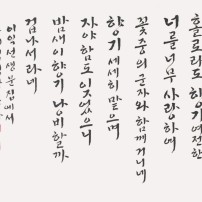 홀로라도 향기 여전한
너를 너무 사랑하여
꽃 중의 군자와 함께 거니네
향기 세세히 맡으며
자야 함도 잊었으니
밤새 이 향기 낭비할까
겁나서라네
이익 선생 문집에서